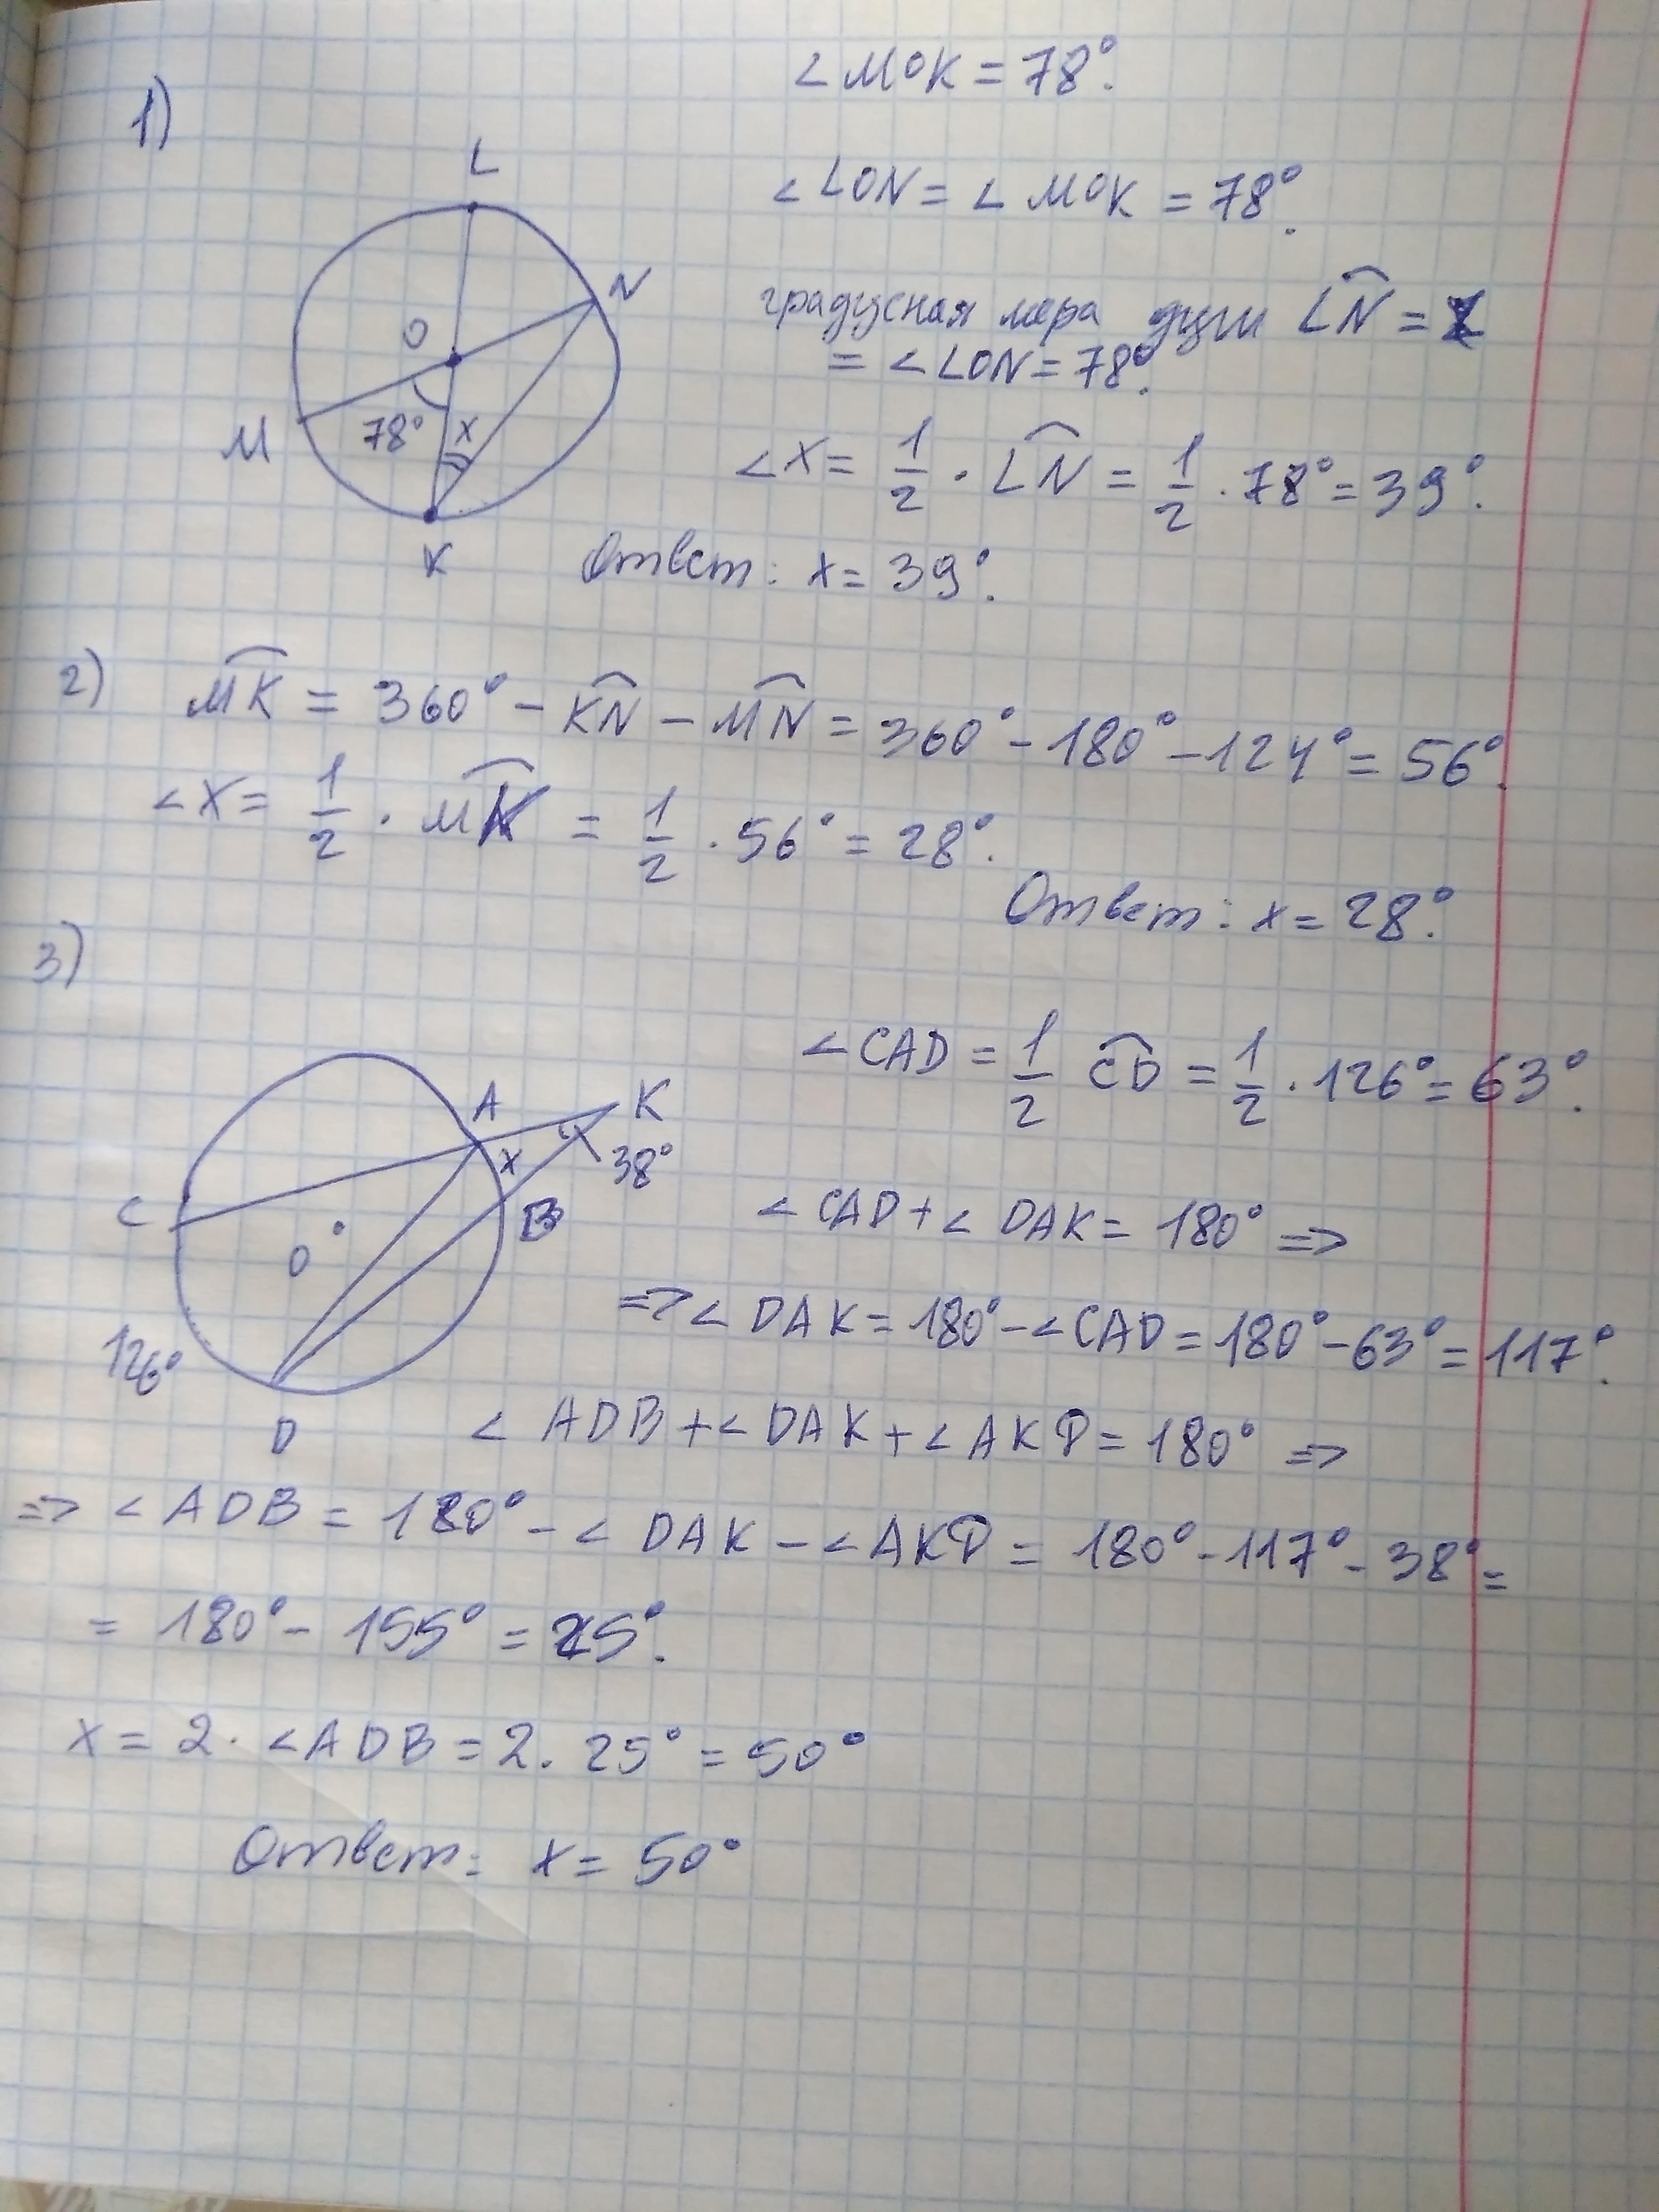 ∠MOK = 78°.
1)
L
∠LON = ∠MOK = 78°.
N
градусная мера дуги LN =
= ∠LON = 78°.
O
M
78°
x
∠X = 1/2 · LN = 1/2 · 78° = 39°.
K
Ответ: x = 39°.
2) MK = 360° - KN - MN = 360° - 180° - 124° = 56°.
∠X = 1/2 · MK = 1/2 · 56° = 28°.
Ответ: x = 28°.
3)
∠CAD = 1/2 CD = 1/2 · 126° = 63°.
A
K
x
38°
C
B
O
∠CAD + ∠DAK = 180° =>
=> ∠DAK = 180° - ∠CAD = 180° - 63° = 117°.
126°
D
∠ADB + ∠DAK + ∠AKD = 180° =>
=> ∠ADB = 180° - ∠DAK - ∠AKD = 180° - 117° - 38° =
= 180° - 155° = 25°.
x = 2 · ∠ADB = 2 · 25° = 50°
Ответ: x = 50°